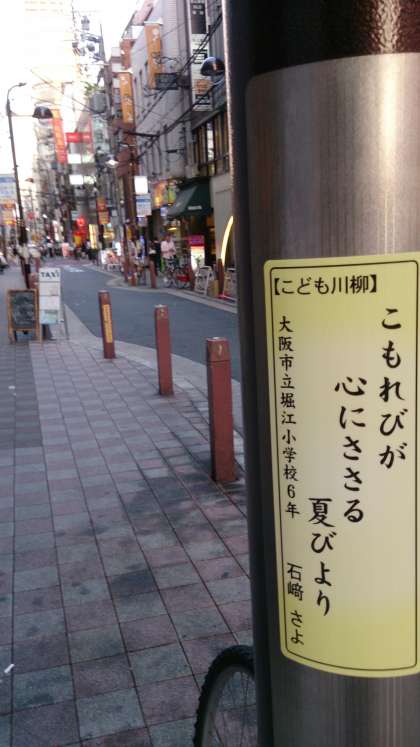 【こども川柳】
こもれびが
心にささる
夏びより
大阪市立堀江小学校6年
石﨑 さよ
TAXI